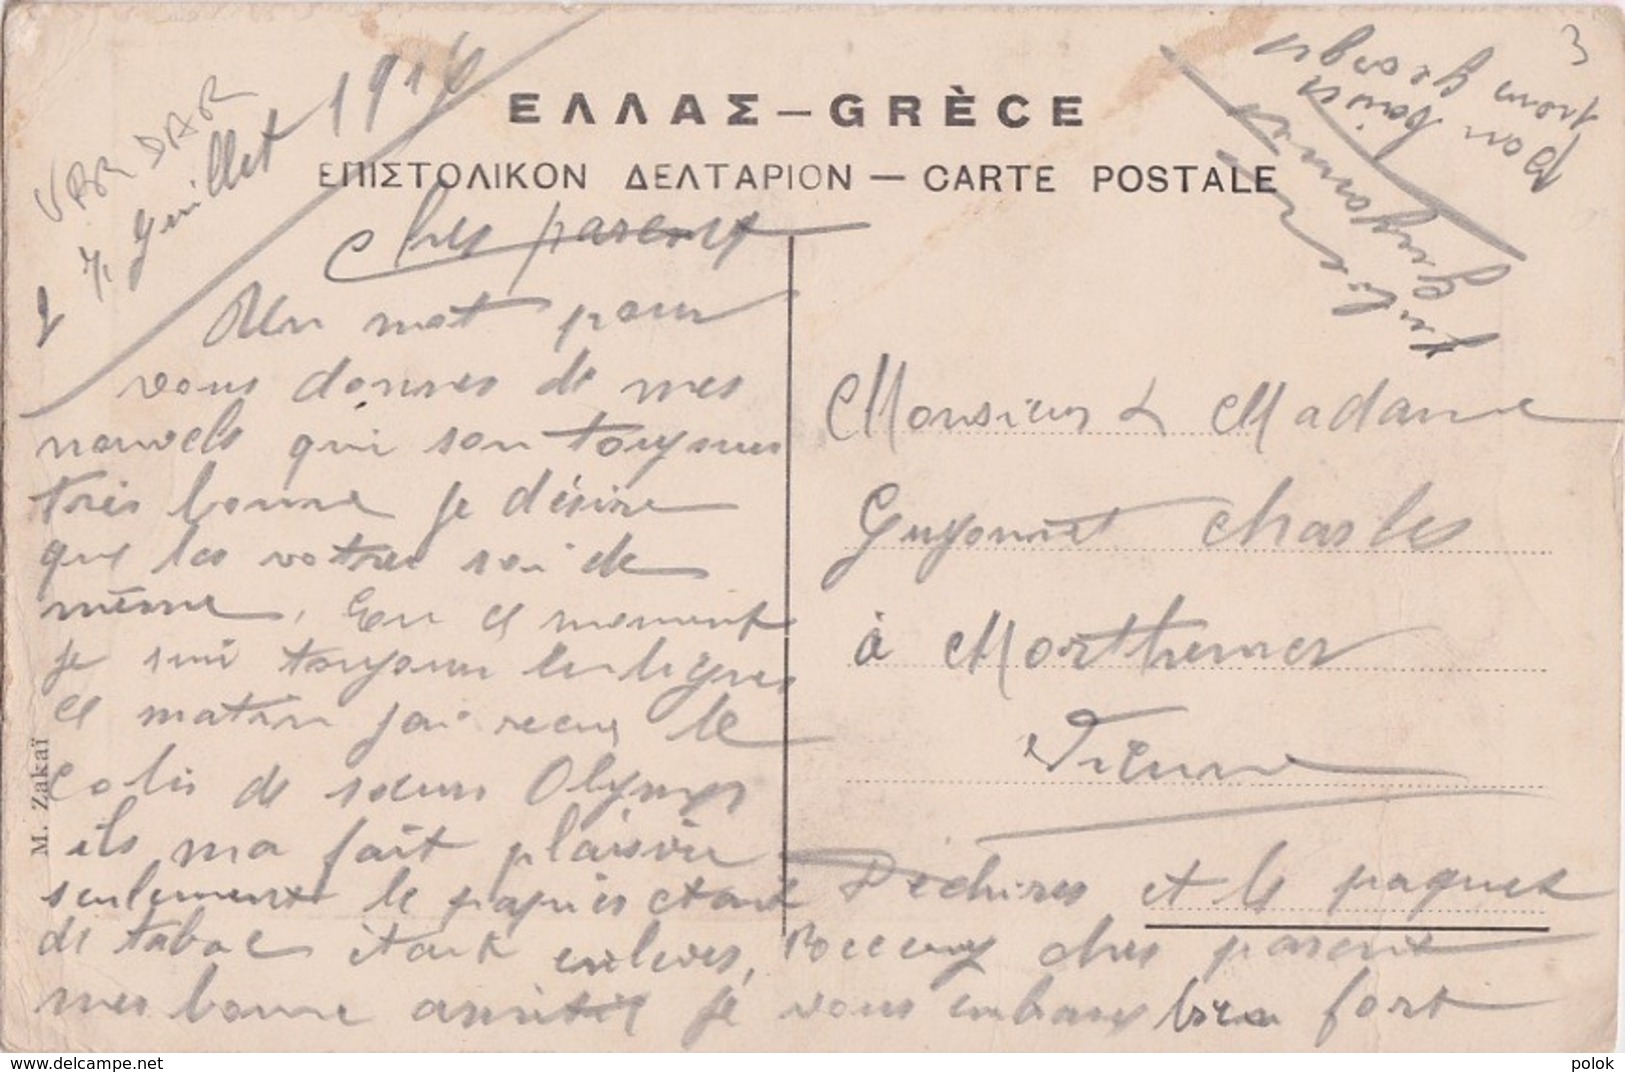 3
VARDAR
Juillet 1916
ΕΛΛΑΣ — GRÈCE
ΕΠΙΣΤΟΛΙΚΟΝ ΔΕΛΤΑΡΙΟΝ — CARTE POSTALE
Cher parents
Un mot pour
vous donner de mes
nouvels qui son toujours
très bonne je désire
que les votres soi de
même. En ce moment
je sui toujours en lignes
ce matin j'ai recu le
colis de sœur Olympe
ils ma fait plaisir
seulement le papier etait Déchirer et le paquet
de tabac etait enlever, Recevez cher parent
mes bonne amitié je vous embrass bien fort
Monsieur & Madame
Guyonnet Charles
à Morthemer
Vienne
fils
Guyonnet
Bon baiser
M. Zakaï
https://www.delcampe.net
polok